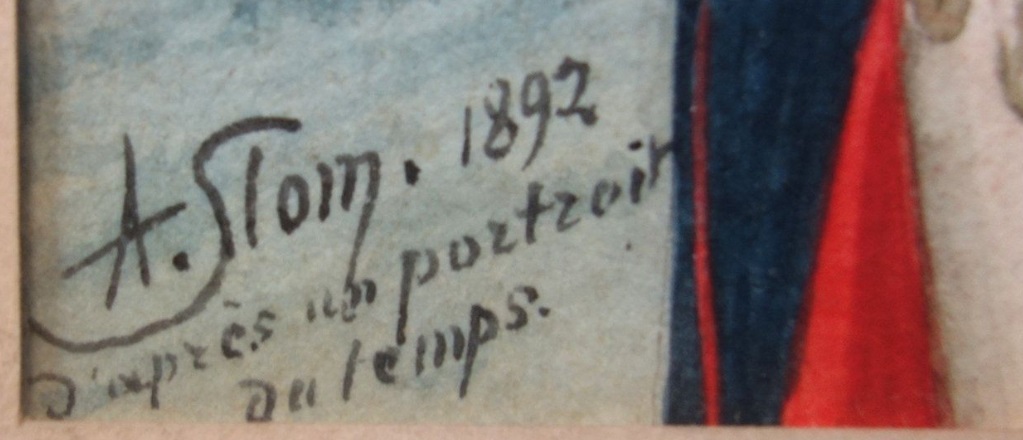 A. Stom. 1892
d'après un portrait
du temps.